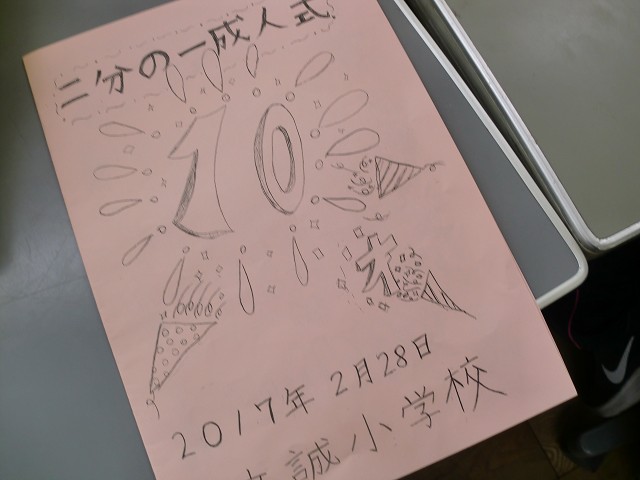 二分の一成人式
10
2017年2月28日
誠小学校